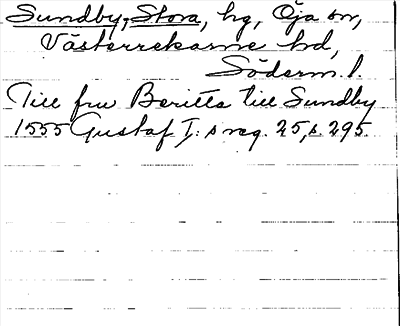 Sundby, Stora, hg, Öja sn,
Västerrekarne hd,
Söderm. l.
Till fru Beritta till Sundby
1555 Gustaf I:s reg. 25, s. 295.